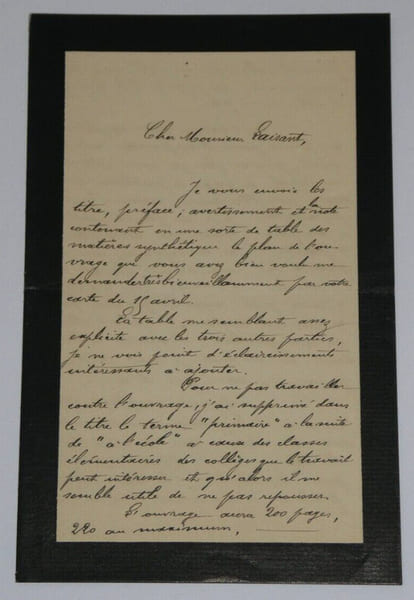 Cher Monsieur Laisant,
Je vous envoie les
titre, préface, avertissement et la note
contenant en une sorte de table des
matières synthétique le plan de l'ou-
vrage que vous avez bien voulu me
demander très bienveillamment par votre
carte du 15 avril.
La table me semblant assez
explicite avec les trois autres parties,
je ne vois point d'éclaircissements
intéressants à ajouter.
Pour ne pas travailler
contre l'ouvrage, j'ai supprimé dans
le titre le terme "primaire" à la suite
de "à l'école" à cause des classes
élémentaires des collèges que le travail
peut intéresser et qu'alors il me
semble utile de ne pas repousser.
L'ouvrage aura 200 pages,
220 au maximum,